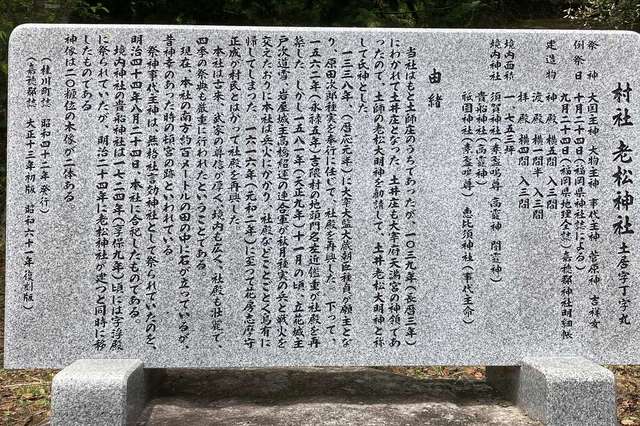 村社 老松神社 土居字丁字丸
祭 神 大国主神 大物主神 事代主神 菅原神 吉祥女
例祭日 十月二十四日(福岡県神社誌による)
九月二十四日(福岡県地理全誌)嘉穂郡神社明細帳
建造物 神殿 横五間 入三間
渡殿 横一間半 入三間
拝殿 横四間 入三間
境内面積 一、七五三坪
境内神社 須賀神社(素盞嗚尊 高靇神 闇靇神)
貴船神社(高靇神)
祇園神社(素盞嗚尊) 恵比須神社(事代主命)
由緒
当社はもと土師庄のうちであったが、一〇三九年(長暦三年)
にわかれて土井庄となった。土井庄も大宰府天満宮の神領であ
ったので、土師の老松大明神を勧請して、土井老松大明神と称
して氏神とした。
一三三八年、(暦応元年)に大宰大監大蔵朝臣種貞が願主とな
り、原田次郎種実を奉行に任じて、社殿を再興した。下って、
一五六二年(永禄五年)吉隈村の地頭門名左近鑑重が社殿を再
築した。しかし一五八一年(天正九年)十一月の頃、立花城主
戸次道雪、岩屋城主高橋紹運の連合軍が秋月種実の兵と戦火を
交えたおりに本社は兵火にかかり、社殿などことごとく烏有に
帰してしまった。一六一六年(元和二年)に至って花房志摩守
正成が村民とはかって社殿を再興した。
本社は古来、武家の尊信が厚く、境内も広く、社殿も壮観で、
四季の祭典も厳重に行われたということである。
現在、本社の南方約百メートルの田の中に石が立っているが、
昔神幸のあった時の頓宮の跡といわれている。
祭神事代主神は、無格社言効神社として祭られていたのを、
明治四十四年八月二十四日、本社に合祀したものである。
境内神社の貴船神社は一七二四年(享保九年)頃には字浮殿
に祭られていたが、明治二十四年に老松神社が建つと同時に移
したものである。
神像は二〇糎位の木像が二体ある。
(桂川町誌 昭和四十二年発行)
(嘉穂郡誌 大正十三年初版 昭和六十一年復刻版)